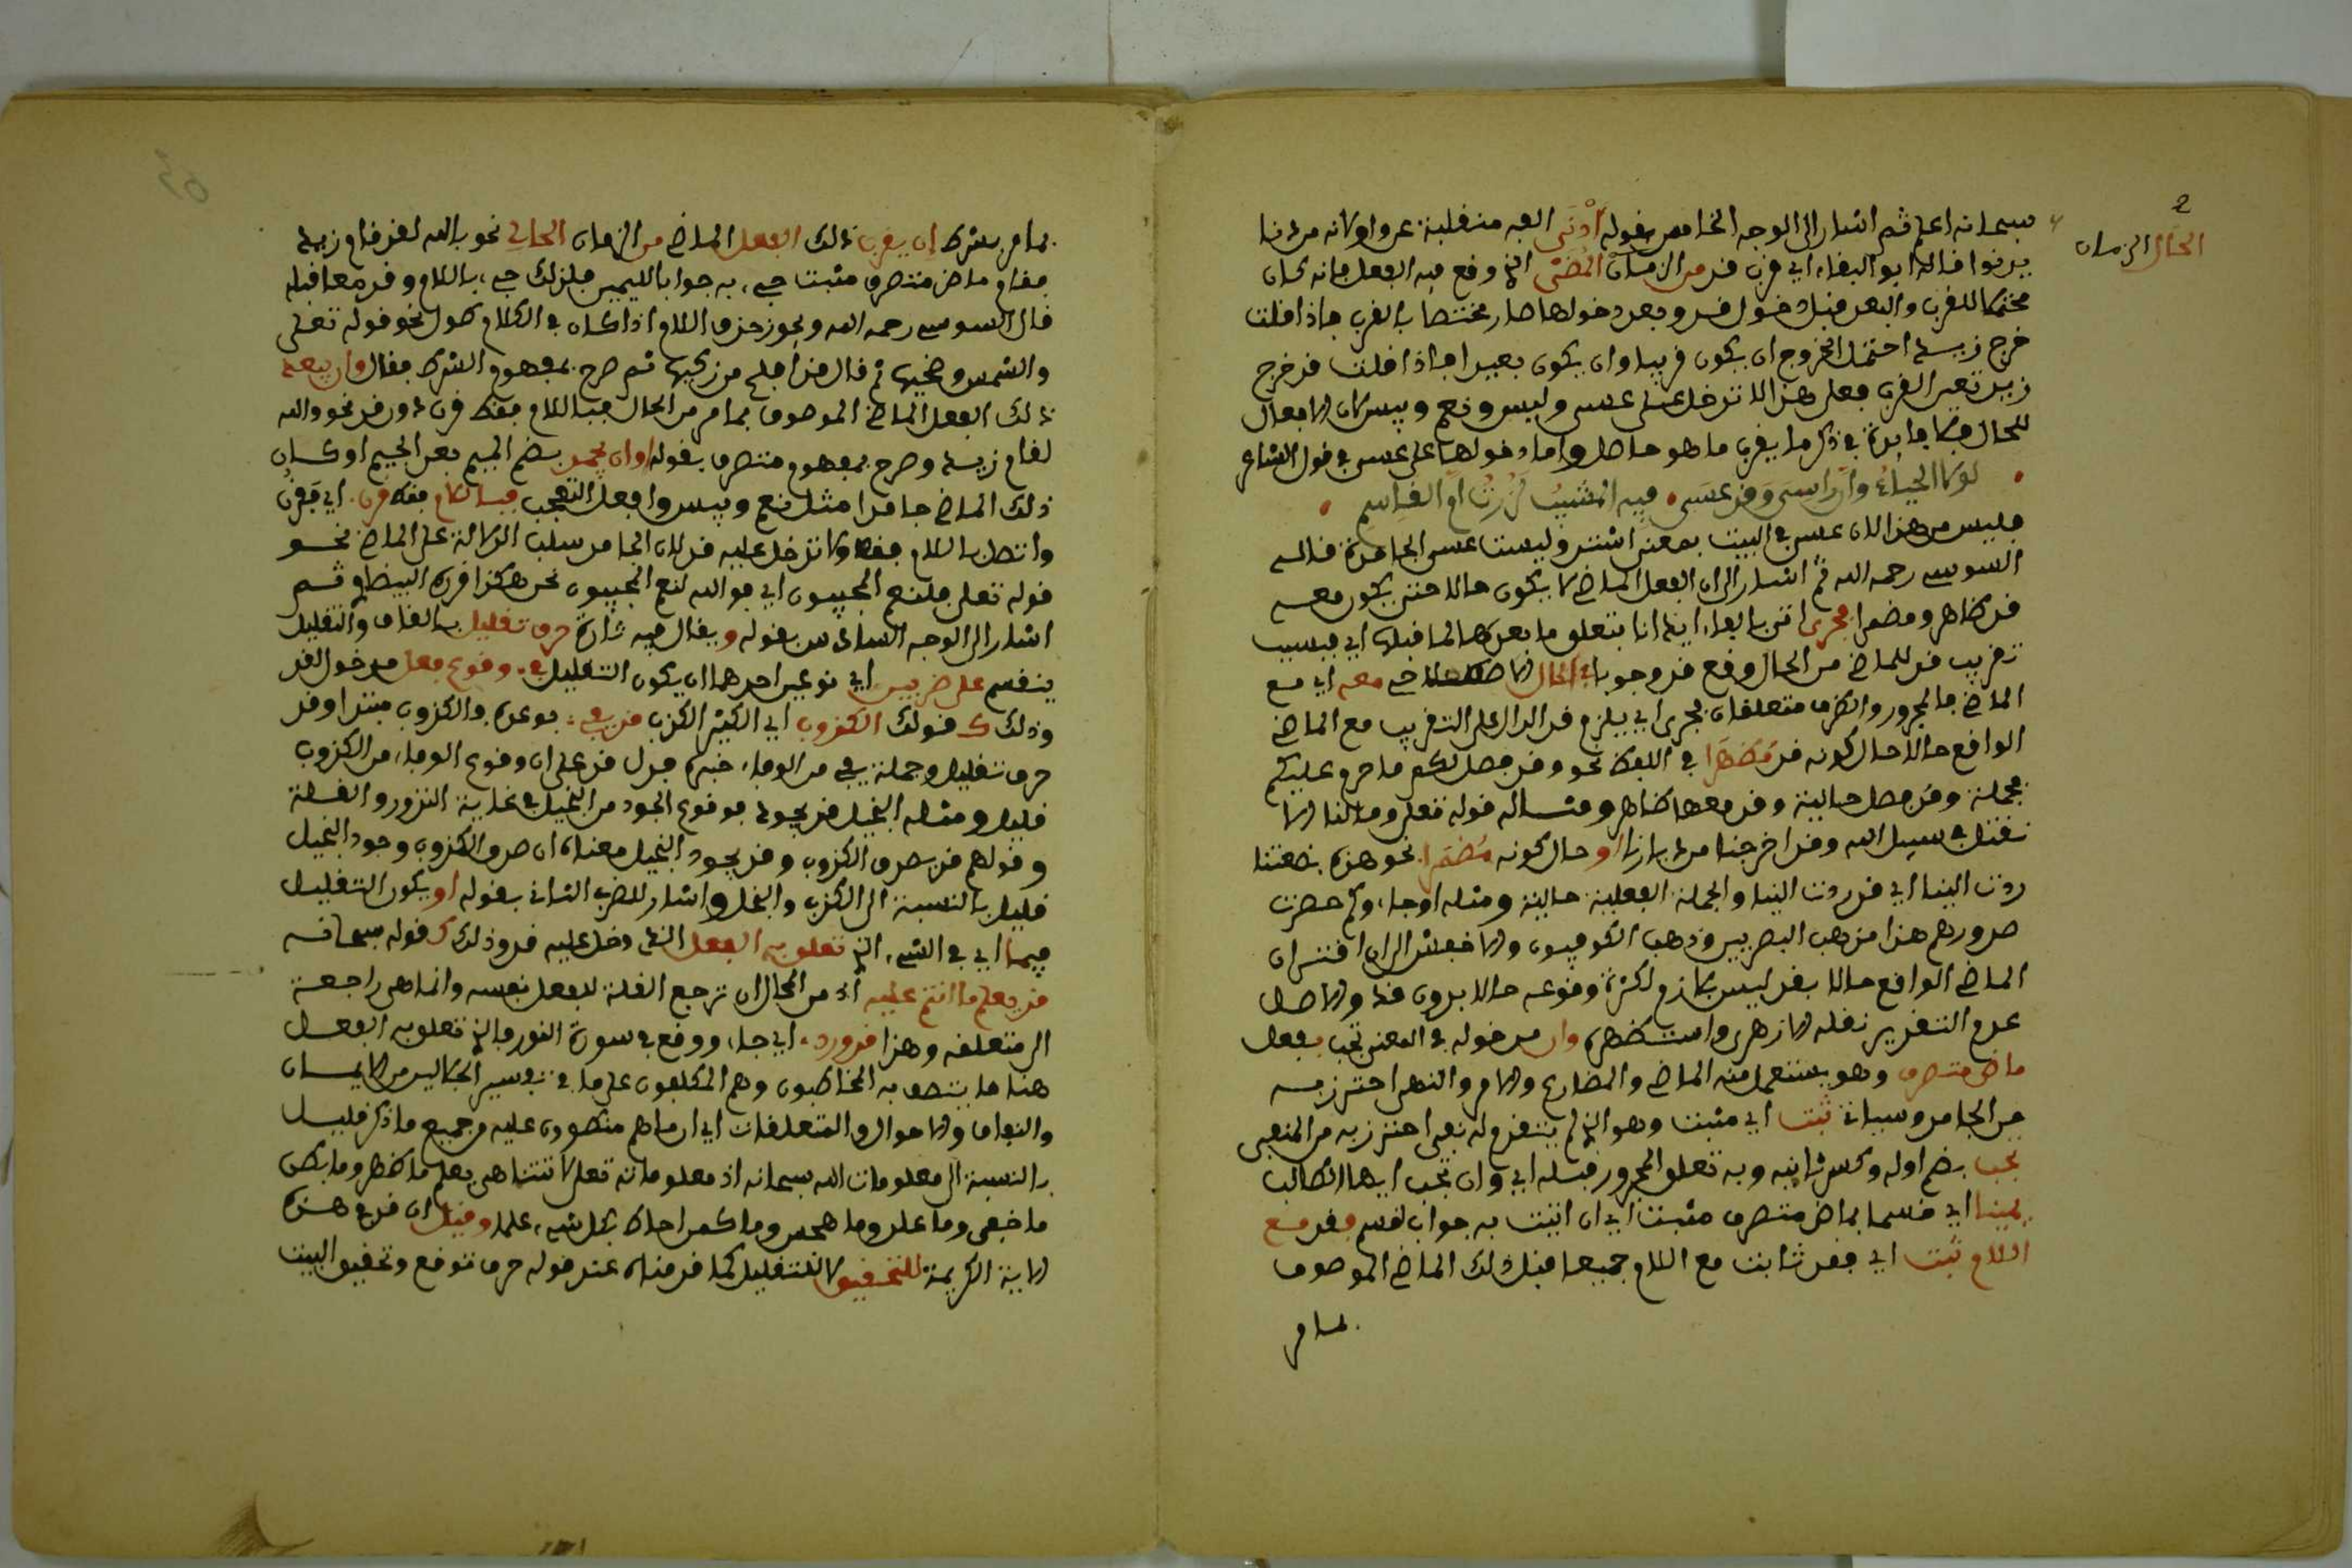 الحال الزمان
سبحانه اعلم ثم اشار الى الوجه الخامس بقوله أدْنَى الفه منقلبة عن واو لانه من دنا
يدنوا قاله ابو البقاء اي قرب قد من الزمان المُضِيّ الذي وقع فيه الفعل فانه كان
محتملا للقرب والبعد قبل دخول قد وبعد دخولها صار مختصا بالقرب فاذا قلت
خرج زيد احتمل الخروج ان يكون قريبا وان يكون بعيدا فاذا قلت قد خرج
زيد تعين القرب فعلى هذا لا تدخل على عسى وليس ونعم وبيس لان الافعال
للحال فلا فايدة في ذكر ما يقرب ما هو حاصل واما دخولها على عسى في قول الشاعر
لولا الحياءُ وأن راسِى قد عَسَى • فيه المشيبُ لزُرتُ امّ القاسم
فليس من هذا لان عسى في البيت بمعنى اشتد وليست عسى الجامدة قاله
السوسي رحمه الله ثم اشار الى ان الفعل الماضي لا يكون حالا حتى يكون معه
قد ظاهرو مضمرا فجرى اتى بالفاء ايذانا بتعلق ما بعدها لما قبلها اي فبسبب
تقريب قد للماضي من الحال وقع قد وجوبا في الحال معه اي مع
الماضي فالمجرور والظرف متعلقان بجرى اي يلزم قد الدال على التقريب مع الماضي
الواقع حالا حال كونه قد مُظهَرا في اللفظ نحو وقد فصل لكم ما حرم عليكم
فجملة وقد فصل حالية وقد معها ظاهر ومثاله قوله تعلى وما لنا الا
نقتل في سبيل الله وقد اخرجنا من ديارنا او حال كونه مُضمَرا نحو هذه بضعتنا
ردت الينا اي قد ردت الينا والجملة الفعلية حالية ومثله او جاءوكم حصرت
صدورهم هذا مذهب البصريين وذهب الكوفيون والاخفش الى ان اقتران
الماضي الواقع حالا بقد ليس بلازم لكثرة وقوعه حالا بدون قد والاصل
عدم التقدير نقله الازهرى واستظهره وان مدخوله في المعنى تجب بفعل
ماض متصرف وهو يستعمل منه الماضي والمضارع والامر والنهى احترز به
من الجامد وسياتي ثبت اي مثبت وهو الذي لم يتقدم له نفى احترز به من المنفى
تجب بضم اوله وكسر ثانيه وبه تعلق المجرور قبله اي وان تجب ايها الطالب
يمينا اي قسما بماض متصرف مثبت اي ان اتيت به جواب لقسم فقد مع
اللام ثبت اي فقد ثابت مع اللام جميعا قبل ذلك الماضي الموصوف
بما مر
بما مر بشرط ان يقرب ذلك الفعل الماضي من الزمان الحالي نحو بالله لقد قام زيد
فقام ماض متصرف مثبت جيء به جوابا لليمين فلذلك جيء باللام وقد معا قبله
قال السوسي رحمه الله ويجوز حذف اللام اذا كان في الكلام طول نحو قوله تعلى
والشمس وضحيها ثم قال قد افلح من زكيها ثم صرح بمفهوم الشرط فقال وان يبعد
ذلك الفعل الماضي الموصوف بما مر من الحال فباللام فقط قرن دون قد نحو والله
لقام زيد وصرح بمفهوم متصرف بقوله او ان يجمد بضم الميم بعد الجيم او كان
ذلك الماضي جامدا مثل نعم وبيس وافعل التعجب فباللام فقط قرن اي يقرن
واتصل باللام فقط ولا تدخل عليه قد لان الجامد سلب الدلالة على الماضي نحو
قوله تعلى فلنعم المجيبون اي فوالله لنعم المجيبون نحن هكذا قرره البيضاوي ثم
اشار الى الوجه السادس بقوله ويقال فيه تارة حرف تقليل بالقاف والتقليل
ينقسم على ضربين اي نوعين احدهما ان يكون التقليل في وقوع فعل مدخول قد
وذلك ك قولك الكذوب اي الكثير الكذب قد يفي بوعده فالكذوب مبتدا وقد
حرف تقليل وجملة يفي من الوفاء خبره فدل قد على ان وقوع الوفاء من الكذوب
قليل ومثله البخيل قد يجود فوقوع الجود من البخيل في غاية النزور والقلة
وقولهم قد يصدق الكذوب وقد يجود البخيل معناه ان صدق الكذوب وجود البخيل
قليل بالنسبة الى الكذب والبخل واشار للضرب الثاني بقوله او يكون التقليل
فيما اي في الشيء الذي تعلق به الفعل الذي دخل عليه قد وذلك ك قوله سبحانه
قد يعلم ما انتم عليه اذ من المحال ان ترجع القلة للفعل نفسه وانما هي راجعة
الى متعلقه وهذا قد ورد اي جاء ووقع في سورة النور فالذي تعلق به الفعل
هنا ما يتصف به المخاطبون وهم المكلفون على ما في تفسير الجلالين من الايمان
والنفاق والاحوال والمتعلقات اي ان ما هم منطوون عليه وجميع ما ذكر قليل
بالنسبة الى معلومات الله سبحانه اذ معلوماته تعلى لا تتناهى يعلم ما ظهر وما بطن
ما خفى وما علن وما هجس وما كمن احاط بكل شيء علما وقيل ان قد في هذه
الاية الكريمة للتحقيق لا للتقليل كما قدمناه عند قوله حرف توقع وتحقيق البيت